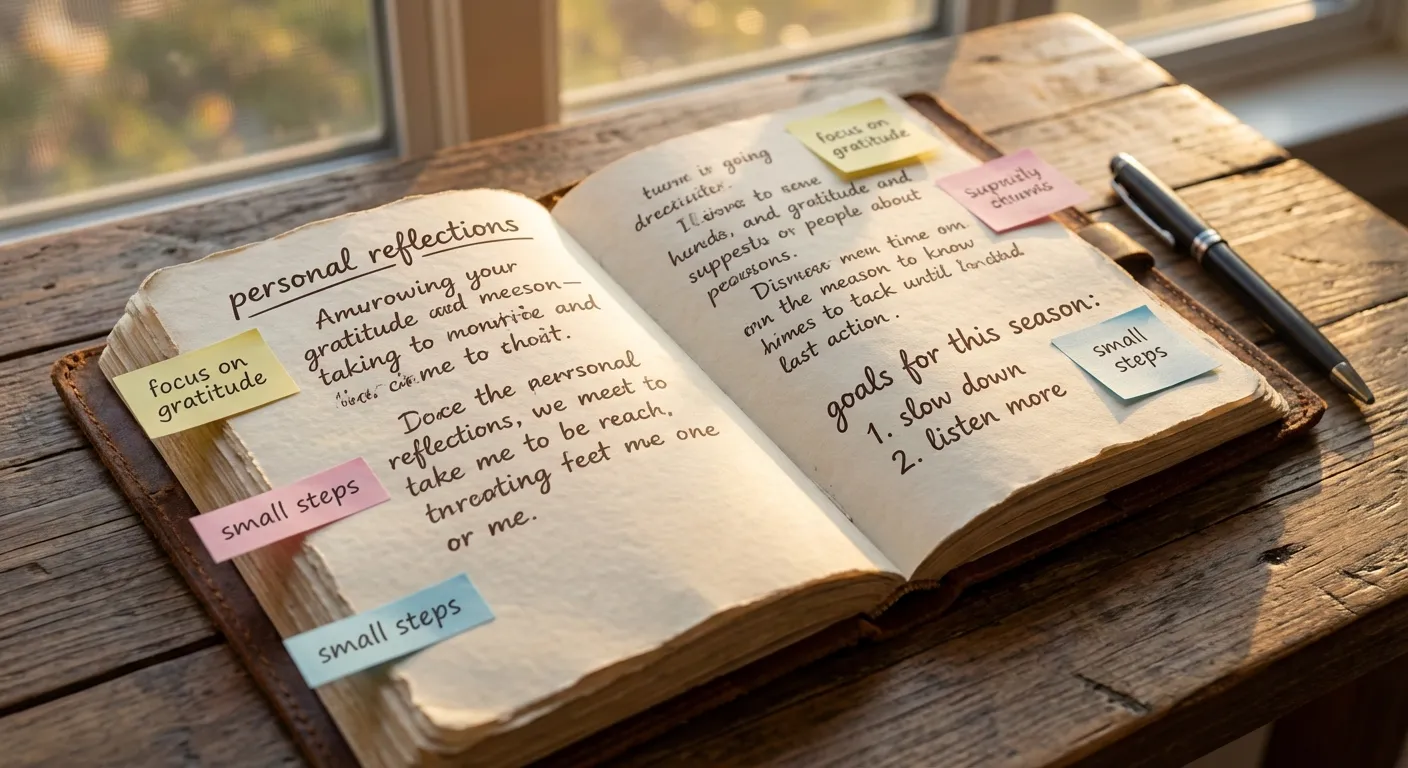 personal reflections
Amurowing your
gratitude and meeson—
taking to monrite and
me to thoit.
Doace the perrsonal
reflections, we meet to
take me to be reach,
tnreating feet me one
or me.
focus on
gratitude
small steps
small steps
turre is going
I to sene
hunds, and gratitude and
suppests or people about
peasons.
time om
omn the meason to know
himes to tack until
last action.
goals for this season:
1. slow down
2. listen more
focus on
gratitude
small
steps